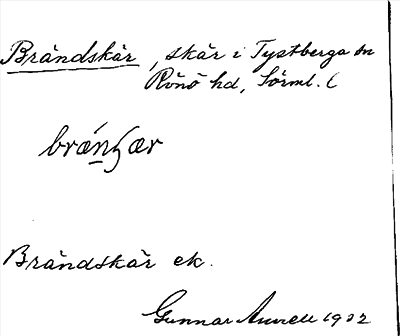 Brändskär, skär i Tystberga sn
Rönö hd, Sörml. (
Brändskär ek.
Gunnar 1932